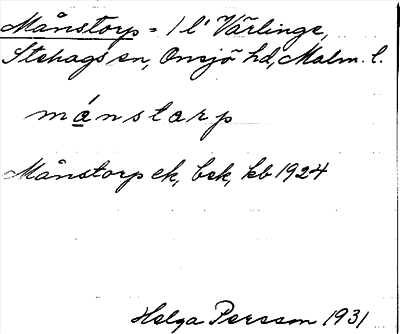 Månstorp = 1 l' Värlinge,
Stehags sn, Onsjö hd, Malm. l.
månstarp
Månstorp ek, bsk, kb 1924
Helga Persson 1931